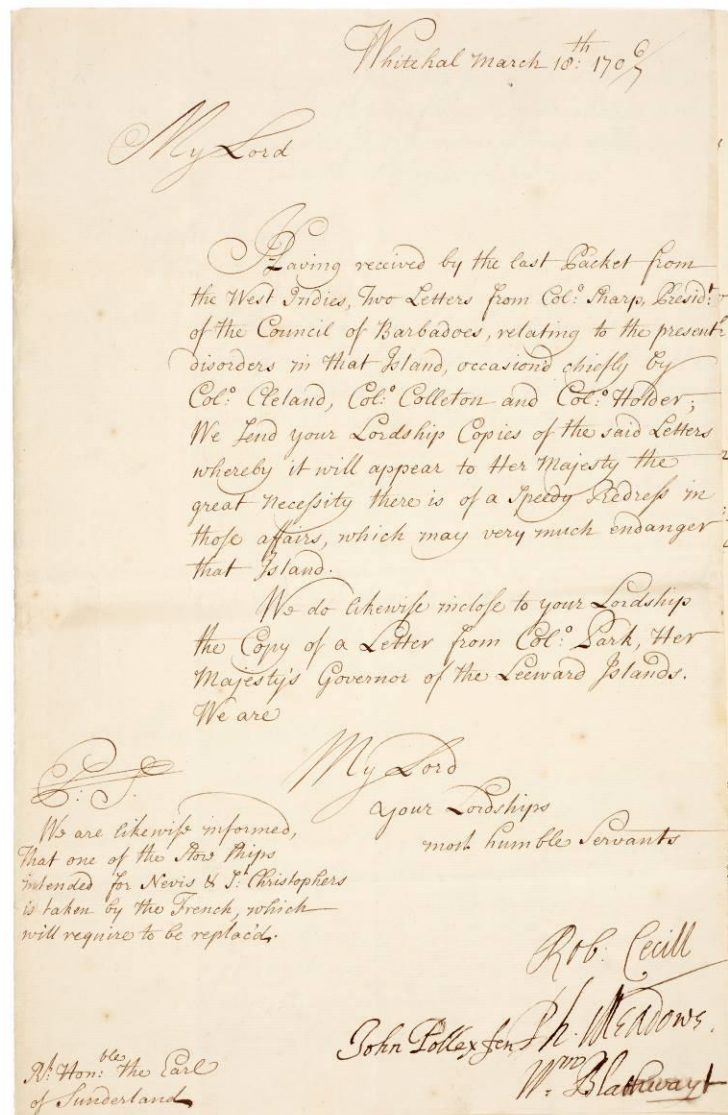 Whitehal March 18:th 170 6/7
My Lord
Having received by the last Packet from
the West Indies, Two Letters from Col:o Sharp, Presid:t
of the Council of Barbadoes, relating to the present
disorders in that Island, occasion'd chiefly by
Col:o Cleland, Col:o Colleton and Col:o Holder;
We send your Lordship Copies of the said Letters
whereby it will appear to Her Majesty the
great Necessity there is of a Speedy Redress in
those affairs, which may very much endanger
that Island.
We do likewise inclose to your Lordship
the Copy of a Letter from Col:o Park, Her
Majesty's Governor of the Leeward Islands.
We are
My Lord
your Lordships
most humble Servants
P:S.
We are likewise informed,
that one of the Store ships
intended for Nevis & S:t Christophers
is taken by the French, which
will require to be replac'd.
Rob: Cecill
Ph. Meadows.
John Pollexfen
W:m Blathwayt
R:t Hon:ble the Earl
of Sunderland